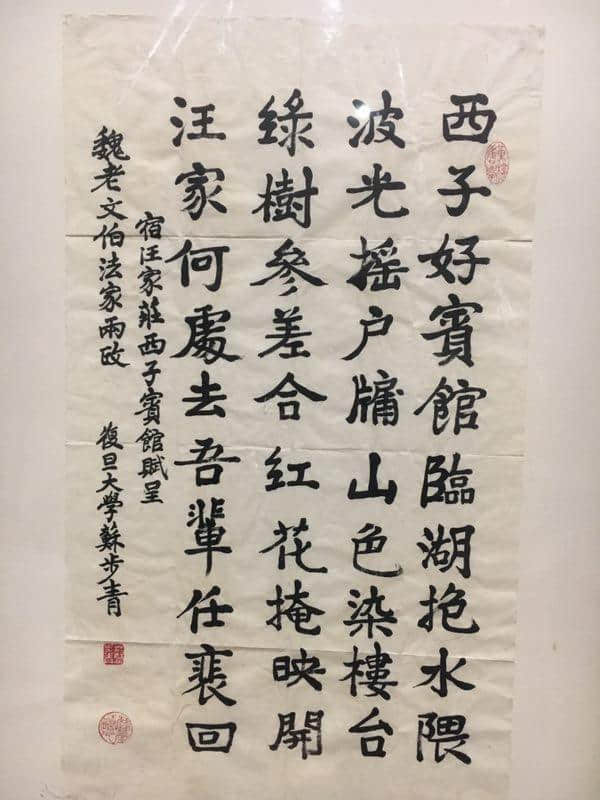 西子好賓館臨湖抱水隈
波光摇户牖山色染樓台
綠樹參差合红花掩映開
汪家何處去吾輩任裴回
宿汪家莊西子賓館賦呈
魏老文伯法家兩政
復旦大學蘇步青